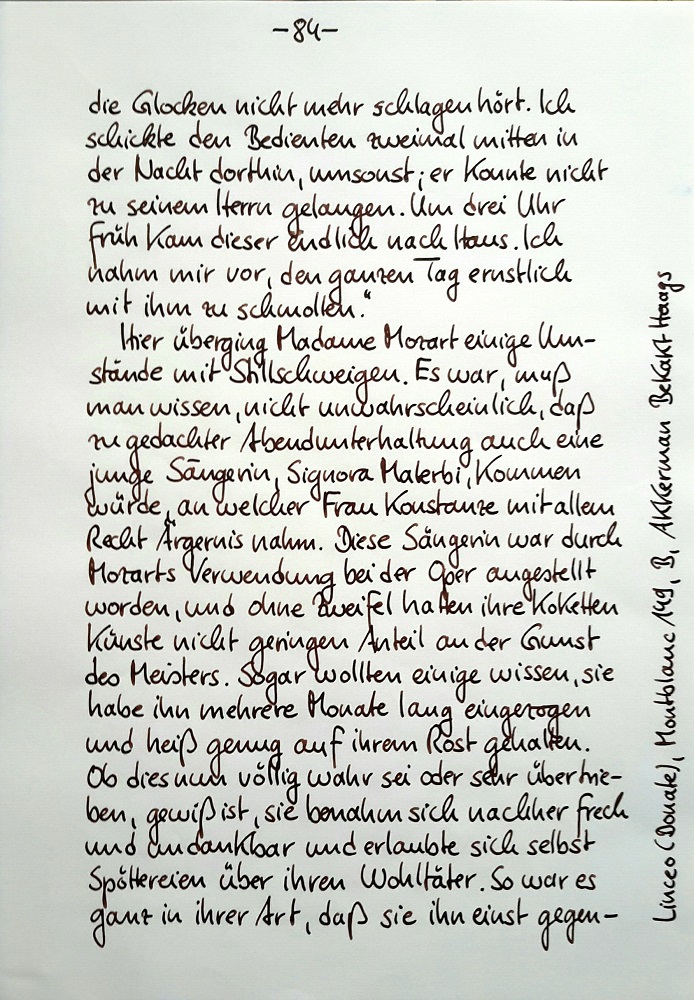 -84-
die Glocken nicht mehr schlagen hört. Ich
schickte den Bedienten zweimal mitten in
der Nacht dorthin, umsonst; er konnte nicht
zu seinem Herrn gelangen. Um drei Uhr
früh kam dieser endlich nach Haus. Ich
nahm mir vor, den ganzen Tag ernstlich
mit ihm zu schmollen.“
Hier überging Madame Mozart einige Um-
stände mit Stillschweigen. Es war, muß
man wissen, nicht unwahrscheinlich, daß
zu gedachter Abendunterhaltung auch eine
junge Sängerin, Signora Malerbi, kommen
würde, an welcher Frau Konstanze mit allem
Recht Ärgernis nahm. Diese Sängerin war durch
Mozarts Verwendung bei der Oper angestellt
worden, und ohne Zweifel hatten ihre koketten
Künste nicht geringen Anteil an der Gunst
des Meisters. Sogar wollten einige wissen, sie
habe ihn mehrere Monate lang eingezogen
und heiß genug auf ihrem Rost gehalten.
Ob dies nun völlig wahr sei oder sehr übertrie-
ben, gewiß ist, sie benahm sich nachher frech
und undankbar und erlaubte sich selbst
Spöttereien über ihren Wohltäter. So war es
ganz in ihrer Art, daß sie ihn einst gegen-
Linceo (Donate), Montblanc 149, B, Akkerman Bekakt Haags